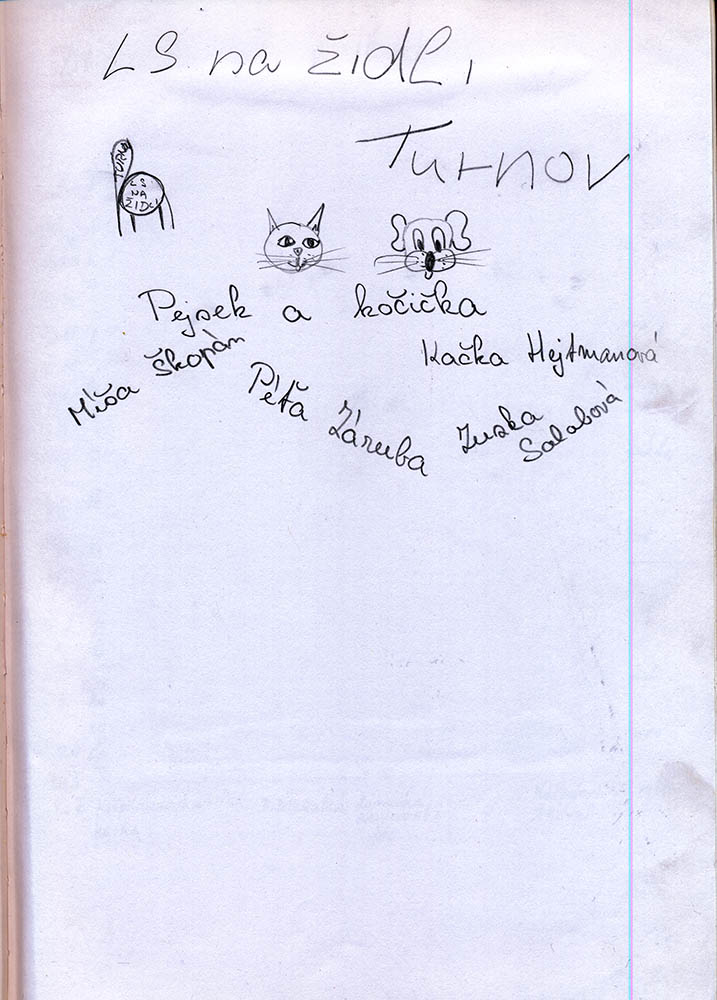 LS na židli
Turnov
TURNOV
LS
NA
ŽIDLI
Pejsek a kočička
Míša Škopán
Kačka Hejtmanová
Péťa Záruba
Zuzka
Salabová